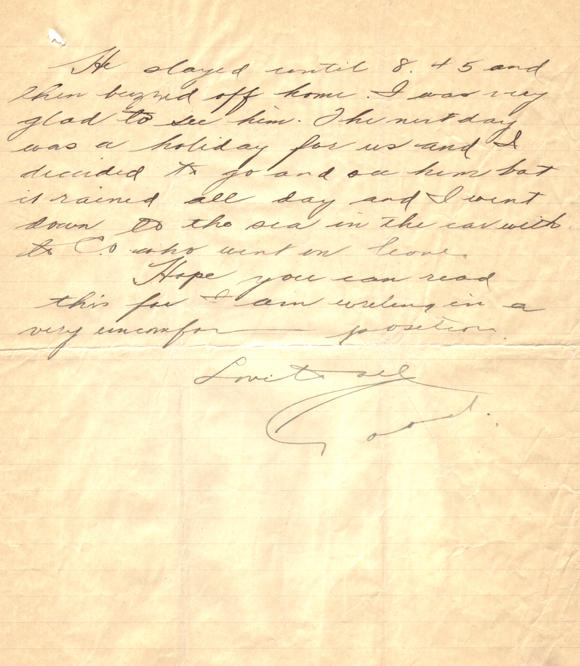 He stayed until 8.45 and
then buzzed off home. I was very
glad to see him. The next day
was a holiday for us and I
decided to go and see him but
it rained all day and I went
down to the sea in the car with
the C.O who went on leave.
Hope you can read
this for I am writing in a
very uncomfor position.
Love to all